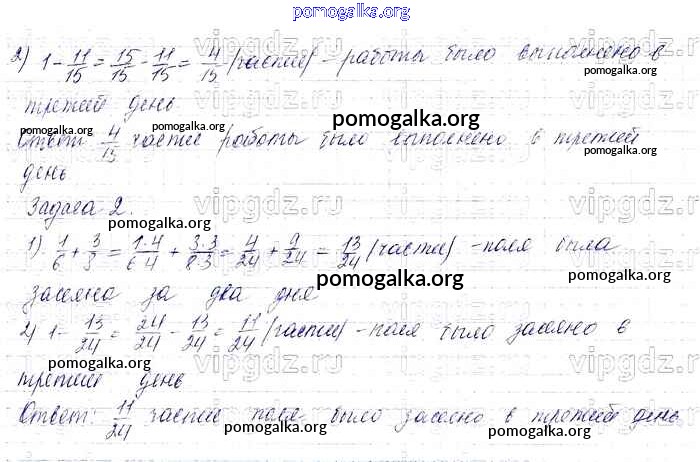 pomogalka.org
2) 1 - 11/15 = 15/15 - 11/15 = 4/15 (части) - работы было выполнено в
третий день
pomogalka.org
Ответ: 4/15 части работы было выполнено в третий
день
Задача 2.
1) 1/6 + 3/8 = 1·4/6·4 + 3·3/8·3 = 4/24 + 9/24 = 13/24 (части) - поля была
засеяно за два дня
2) 1 - 13/24 = 24/24 - 13/24 = 11/24 (части) - поля было засеяно в
третий день
Ответ: 11/24 части поля было засеяно в третий день
vipgdz.ru